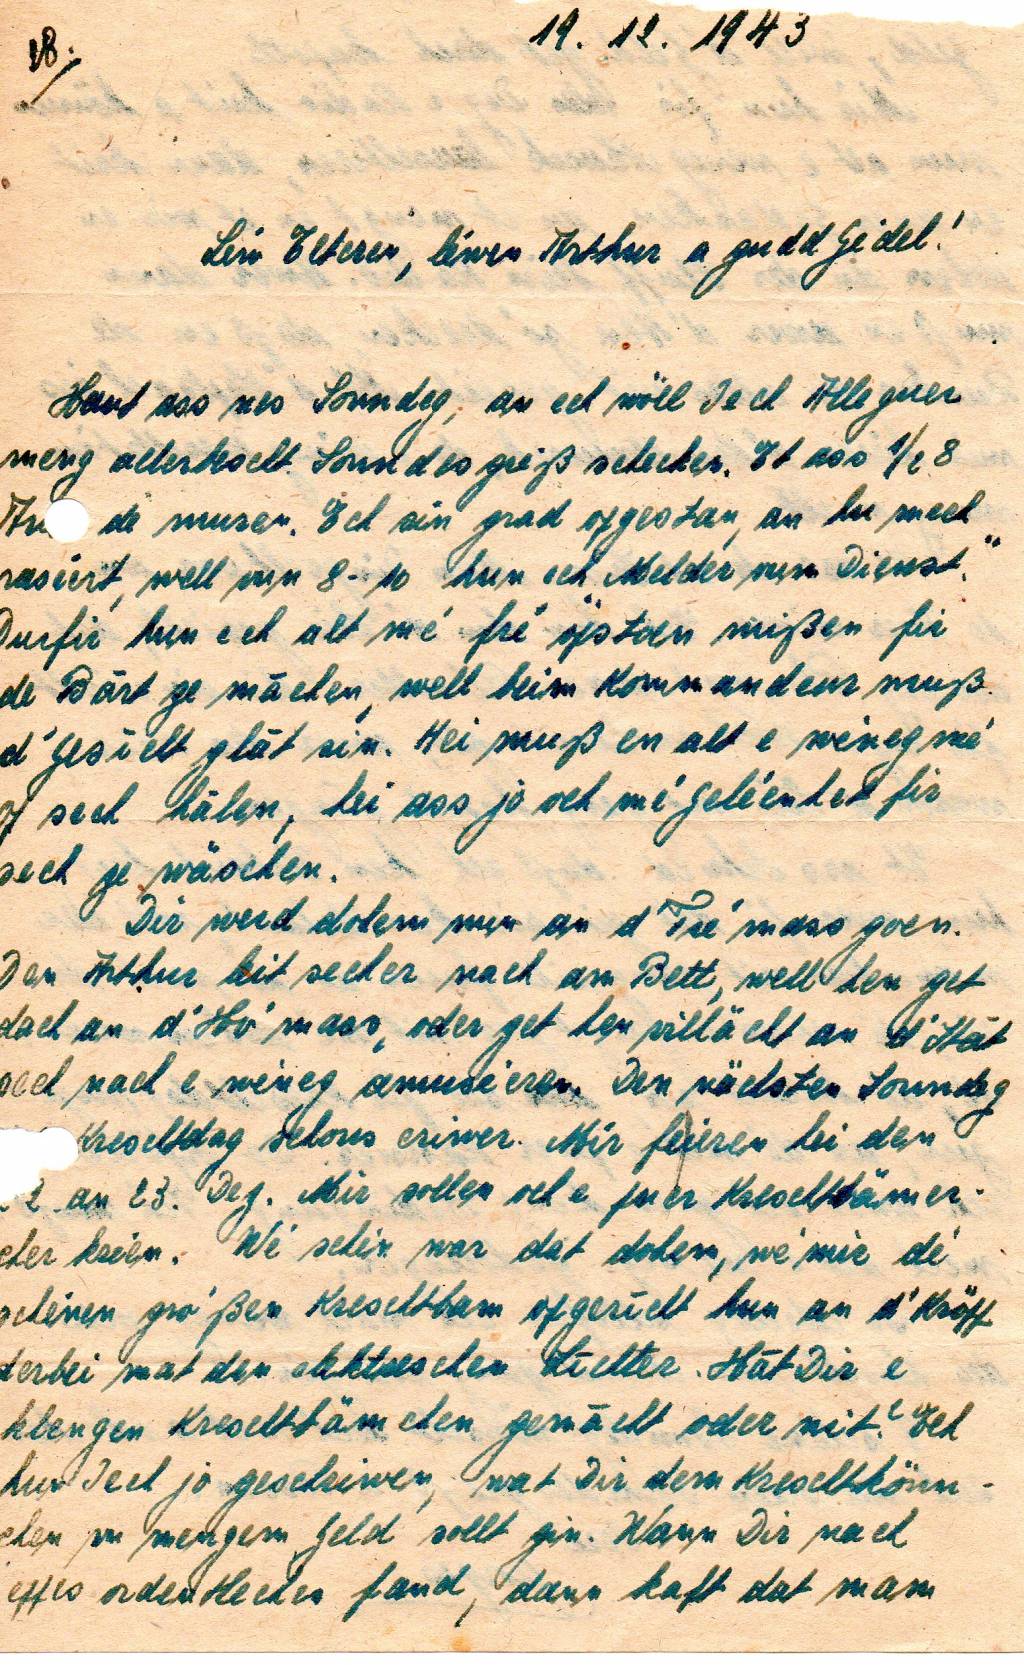 18.
19. 12. 1943
Léiw Elteren, léiwen Arthur a gudd Gidel!
Haut ass nes Sonndeg, an ech wöll Iech Alleguer
meng allerhescht Sonndesgréiß schecken. Et ass 1/2 8
de muren. Ech sin grad opgestan, an hu mech
raséiert, well vun 8-10 hun ech „Melder vum Dienst."
Durfir hun ech alt mé fré opstoen mißen fir
de Bârt ze mâchen, well beim Kommandeur muß
d'Gesîcht glât sin. Hei muß en alt e wéneg mé
op sech hâlen, hei ass jo och mé Geléenhet fir
sech ze wäschen.
Dir werd dohem nun an d'Fré'mass goen.
Den Arthur leit secher nach am Bett, well hen get
dach an d'Ho'mass, oder get hen villächt an d'Stât
sech nach e wéneg amuséieren. Den nächsten Sonndeg
Kreschtdag schons eriwer. Mir feieren hei den
22 an 23. Dez. Mir sollen och e puer Kreschtbämer-
cher kréien. Wé schéin war dat dohem, wé mir dé
schéinen gro'ßen Kreschtbam opgerîcht hun an d'Kröpp
derbei mat den elektreschen Liichter. Hât Dir e
klengen Kreschtbämchen gemâcht oder nit? Ech
hun Iech jo geschriwen, wat Dir dem Kreschtkönn-
chen vu mengem Geld sollt gin. Wann Dir nach
eppes ordentleches fand, dann kaft dat mam